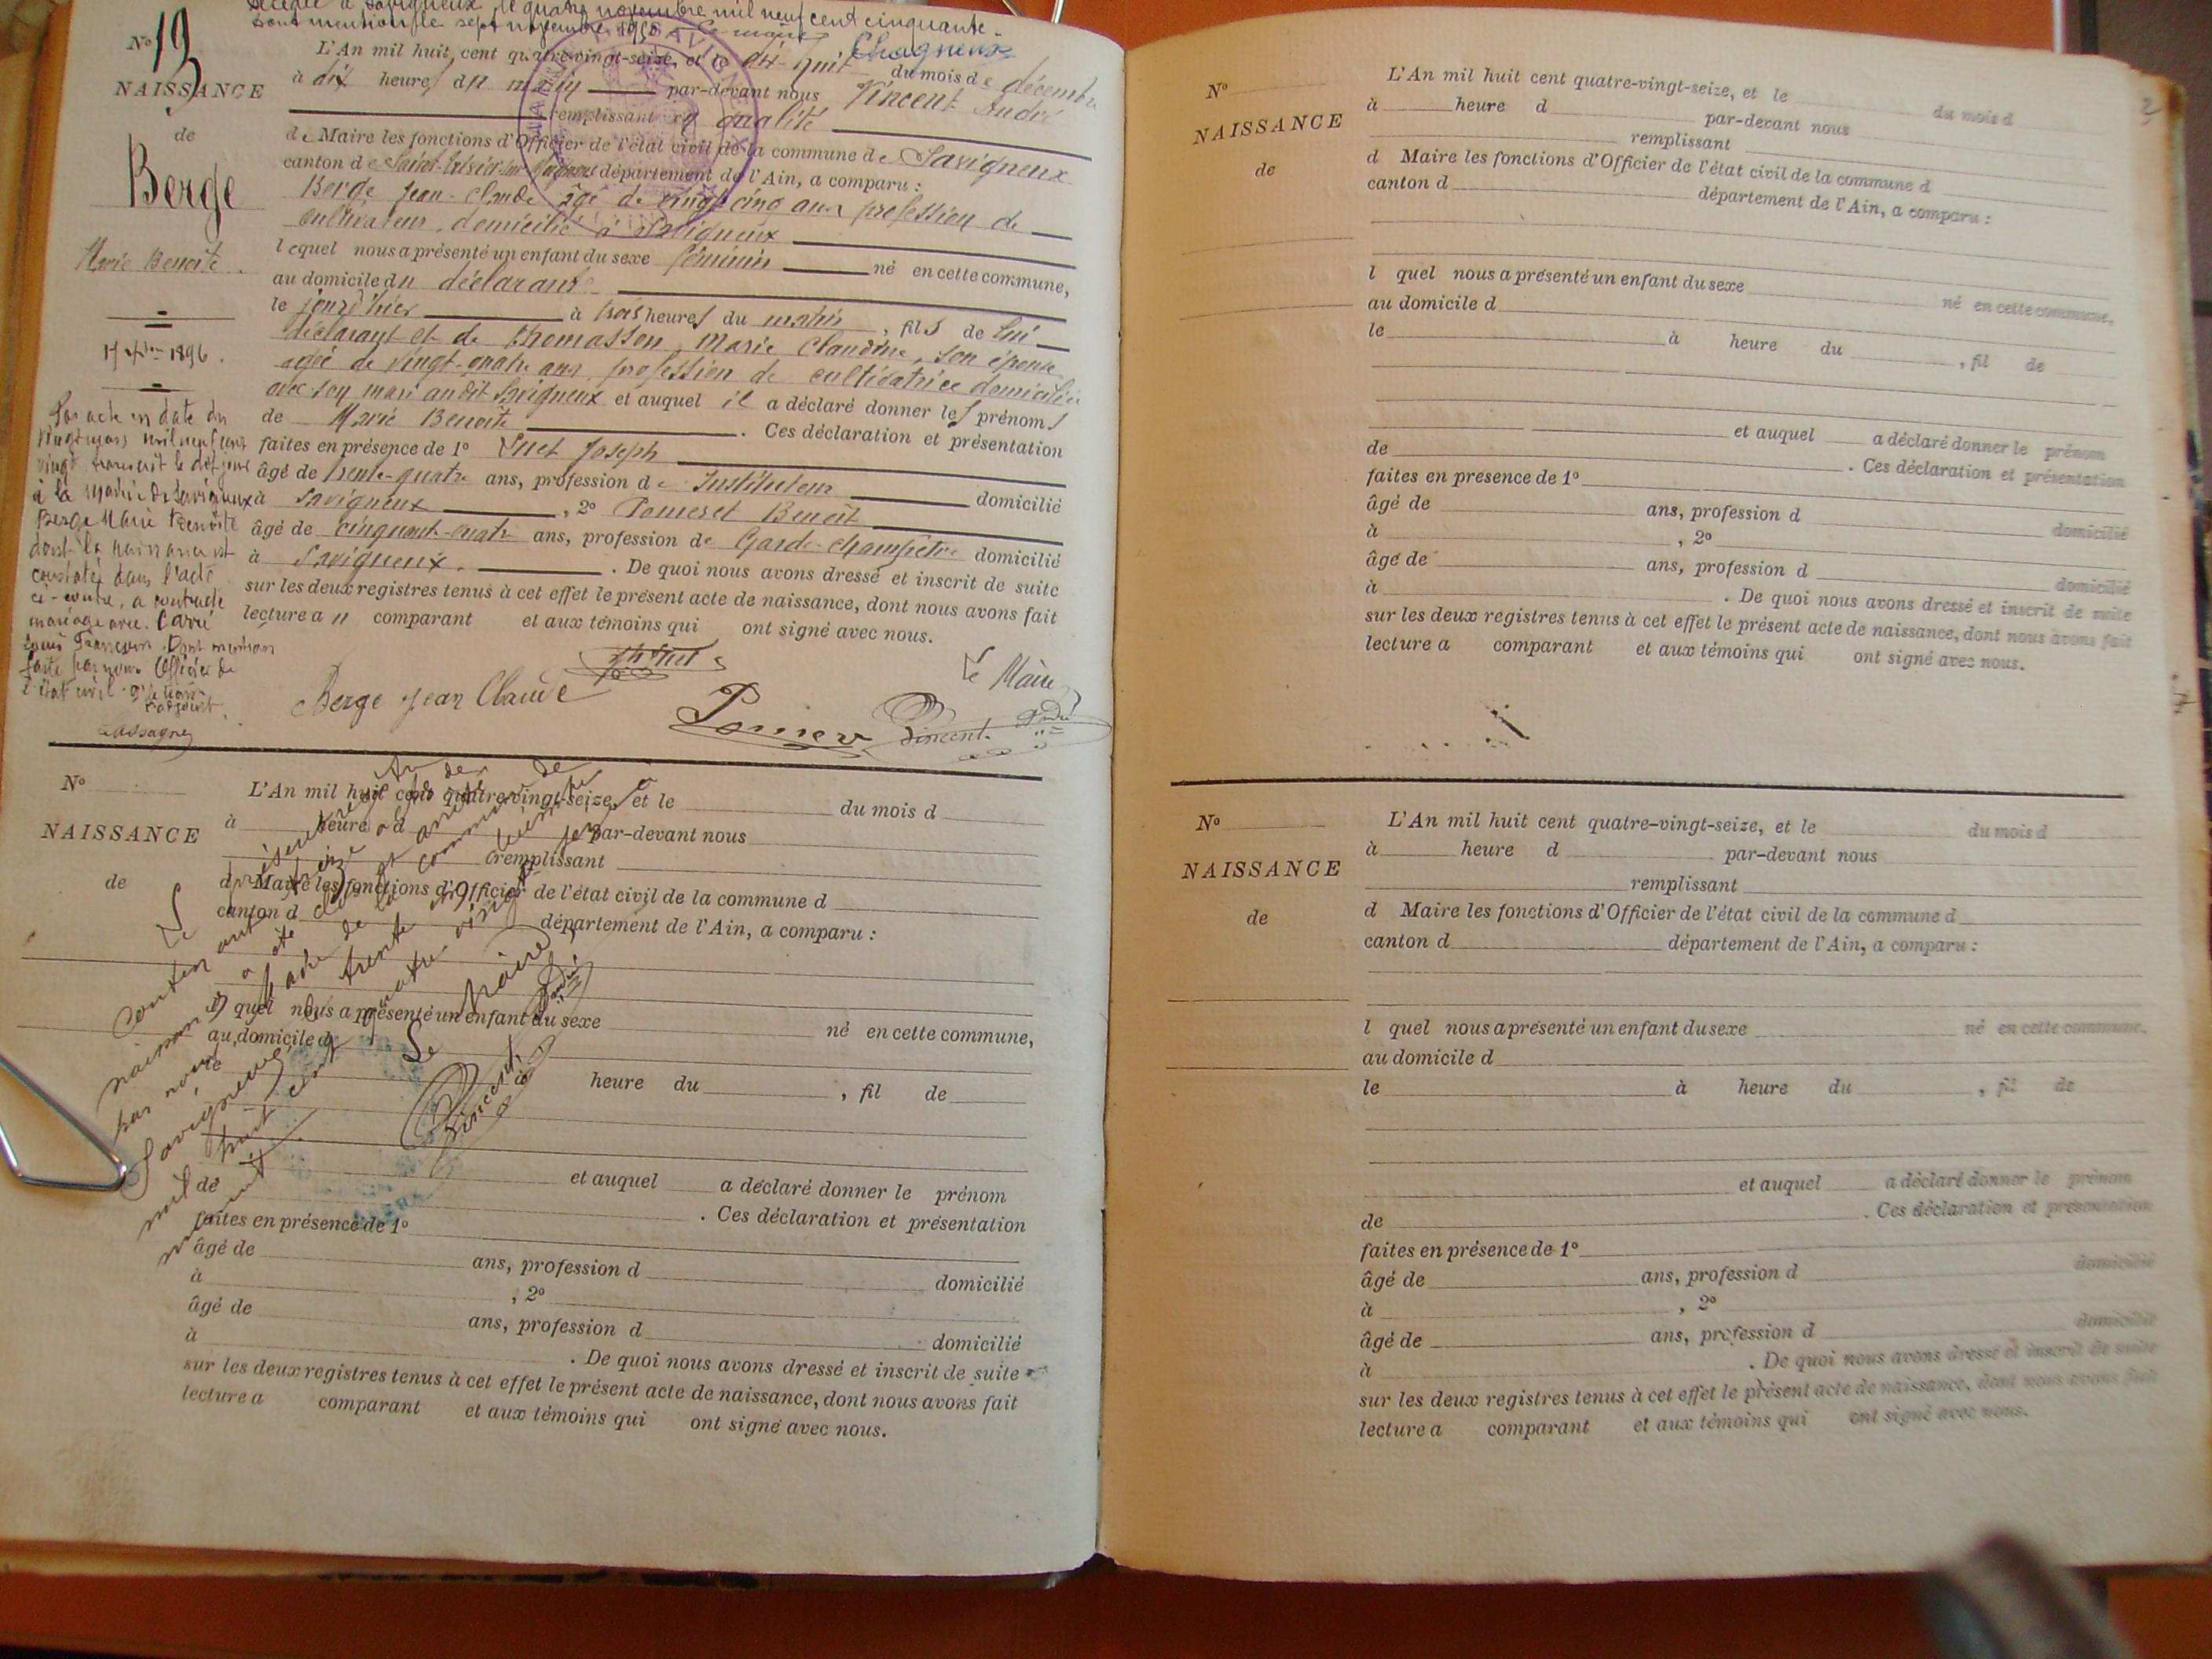 Décédée à Savigneux le quatre novembre mil neuf cent cinquante.
Dont mention le sept novembre 1950 Le maire
Chagneux
N° 19
NAISSANCE
de
Berge
Marie Benoite.
17 Xbre 1896.
Par acte en date du
vingt mars mil neuf cent
vingt transcrit le dit jour
à la Mairie de Savigneux
Berge Marie Benoîte
dont la naissance est
constatée dans l'acte
ci-contre, a contracté
mariage avec Carré
Louis François. Dont mention
faite par nous Officier de
l'état civil
L'adjoint
L'An mil huit cent quatre-vingt-seize, et le dix-huit du mois de décembre
à dix heures du matin par-devant nous Vincent André
remplissant en qualité
de Maire les fonctions d'Officier de l'état civil de la commune de Savigneux
canton de Saint-Trivier-sur-Moignans département de l'Ain, a comparu :
Berge Jean-Claude âgé de vingt cinq ans profession de
cultivateur, domicilié à Savigneux
lequel nous a présenté un enfant du sexe féminin né en cette commune,
au domicile du déclarant
le jour d'hier à trois heures du matin, fils de lui
déclarant et de Thomasson, Marie Claudine, son épouse
agée de vingt-quatre ans, profession de cultivatrice domiciliée
avec son mari audit Savigneux et auquel il a déclaré donner les prénoms
de Marie Benoîte. Ces déclaration et présentation
faites en présence de 1° Joseph
âgé de trente-quatre ans, profession de Instituteur domicilié
à Savigneux, 2° Benoît
âgé de cinquante-quatre ans, profession de Garde-champêtre domicilié
à Savigneux. De quoi nous avons dressé et inscrit de suite
sur les deux registres tenus à cet effet le présent acte de naissance, dont nous avons fait
lecture au comparant et aux témoins qui ont signé avec nous.
Le Maire
Berge Jean Claude
Vincent André
N°
NAISSANCE
de
L'An mil huit cent quatre-vingt-seize, et le du mois d
à heure d par-devant nous
remplissant
d Maire les fonctions d'Officier de l'état civil de la commune d
canton d département de l'Ain, a comparu :
l quel nous a présenté un enfant du sexe né en cette commune,
au domicile d
le à heure du , fil de
et auquel a déclaré donner le prénom
de . Ces déclaration et présentation
faites en présence de 1°
âgé de ans, profession d domicilié
à , 2°
âgé de ans, profession d domicilié
à . De quoi nous avons dressé et inscrit de suite
sur les deux registres tenus à cet effet le présent acte de naissance, dont nous avons fait
lecture a comparant et aux témoins qui ont signé avec nous.
Le présent registre des
contenant treize
naissances a été clos et arrêté
par nous Maire de la commune de
Savigneux le trente
mil huit cent quatre vingt seize
Le Maire
Vincent André
N°
NAISSANCE
de
L'An mil huit cent quatre-vingt-seize, et le du mois d
à heure d par-devant nous
remplissant
d Maire les fonctions d'Officier de l'état civil de la commune d
canton d département de l'Ain, a comparu :
l quel nous a présenté un enfant du sexe né en cette commune,
au domicile d
le à heure du , fil de
et auquel a déclaré donner le prénom
de . Ces déclaration et présentation
faites en présence de 1°
âgé de ans, profession d domicilié
à , 2°
âgé de ans, profession d domicilié
à . De quoi nous avons dressé et inscrit de suite
sur les deux registres tenus à cet effet le présent acte de naissance, dont nous avons fait
lecture a comparant et aux témoins qui ont signé avec nous.
N°
NAISSANCE
de
L'An mil huit cent quatre-vingt-seize, et le du mois d
à heure d par-devant nous
remplissant
d Maire les fonctions d'Officier de l'état civil de la commune d
canton d département de l'Ain, a comparu :
l quel nous a présenté un enfant du sexe né en cette commune.
au domicile d
le à heure du , fil de
et auquel a déclaré donner le prénom
de . Ces déclaration et présentation
faites en présence de 1°
âgé de ans, profession d domicilié
à , 2°
âgé de ans, profession d domicilié
à . De quoi nous avons dressé et inscrit de suite
sur les deux registres tenus à cet effet le présent acte de naissance, dont nous avons fait
lecture a comparant et aux témoins qui ont signé avec nous.